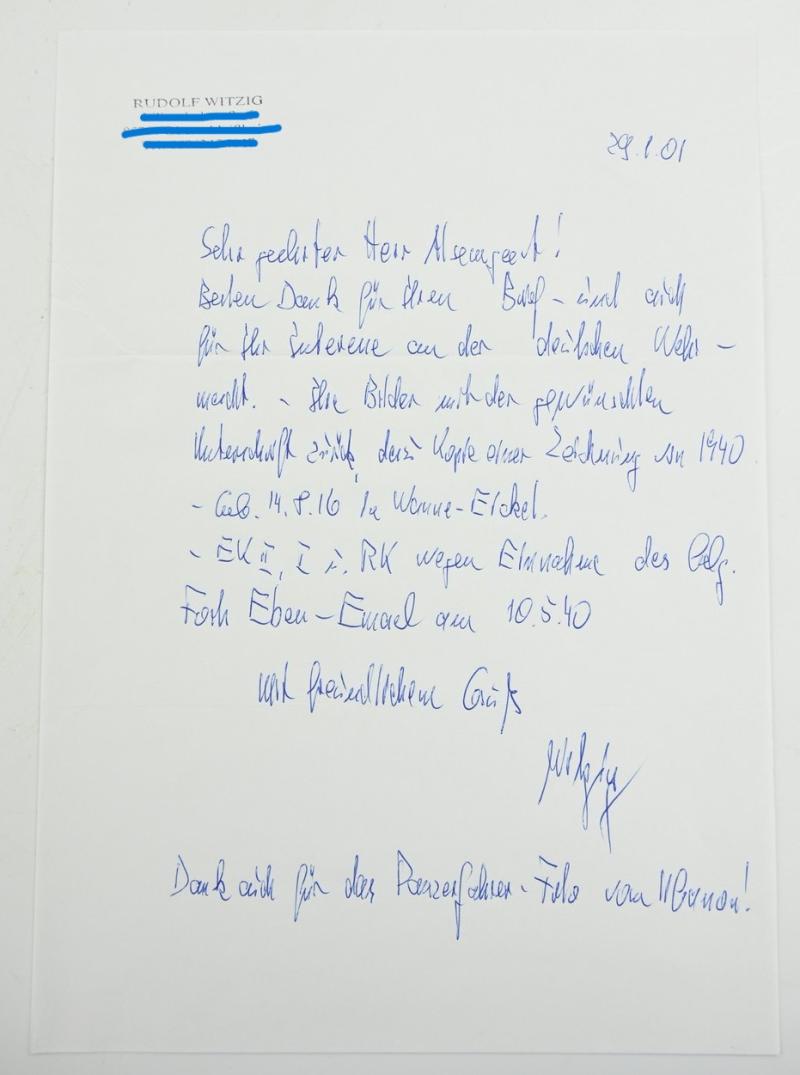 RUDOLF WITZIG
29.1.01
Sehr geehrter Herr
Besten Dank für Ihren Brief – und auch
für Ihr Interesse an der deutschen Wehr –
macht. – Ihre Bilder mit der gewünschten
Unterschrift zurück, dazu Kopie einer Zeichnung von 1940
– Geb. 14.8.16 in Wanne-Eickel.
– EK II, I u. RK wegen Einnahme des belg.
Forts Eben-Emael am 10.5.40
Mit freundlichem Gruß
Witzig
Dank auch für das Panzerfahrer-Foto vom